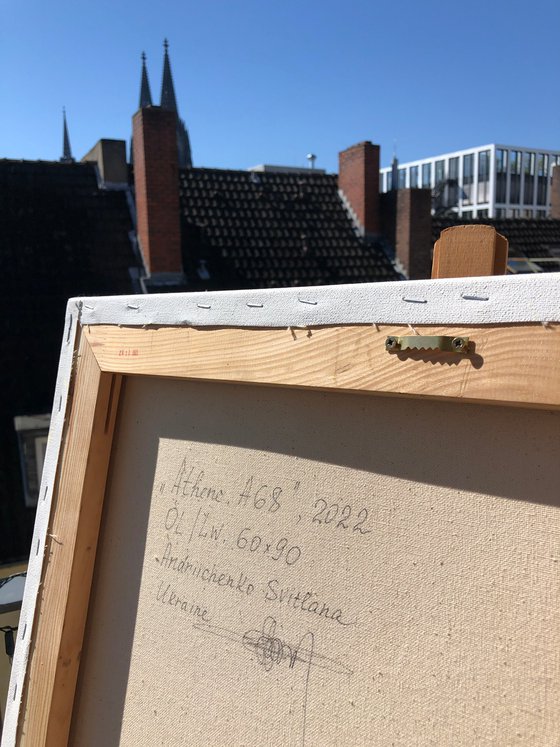 „Athene. A68", 2022
ÖL/Lw. 60x90
Andriichenko Svitlana
Ukraine